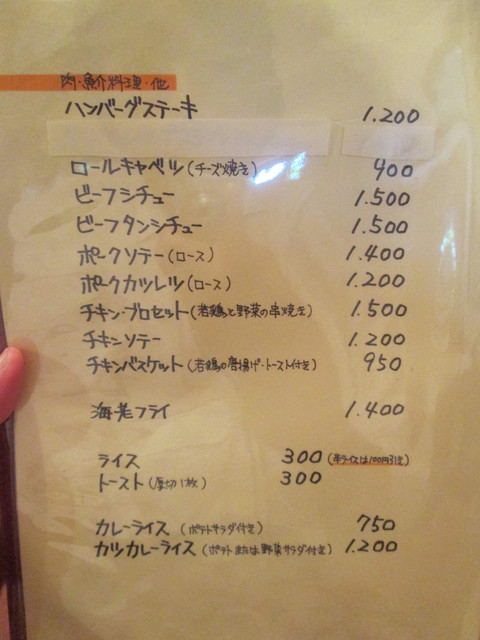 肉・魚介料理・他
ハンバーグステーキ 1.200
ロールキャベツ(チーズ焼き) 400
ビーフシチュー 1.500
ビーフタンシチュー 1.500
ポークソテー(ロース) 1.400
ポークカツレツ(ロース) 1.200
チキン・ブロセット(若鶏と野菜の串焼き) 1.500
チキンソテー 1.200
チキンバスケット(若鶏の唐揚げ・トースト付き) 950
海老フライ 1.400
ライス 300(半ライスは100円引き)
トースト(厚切1枚) 300
カレーライス(ポテトサラダ付き) 750
カツカレーライス(ポテトまたは野菜サラダ付き) 1.200